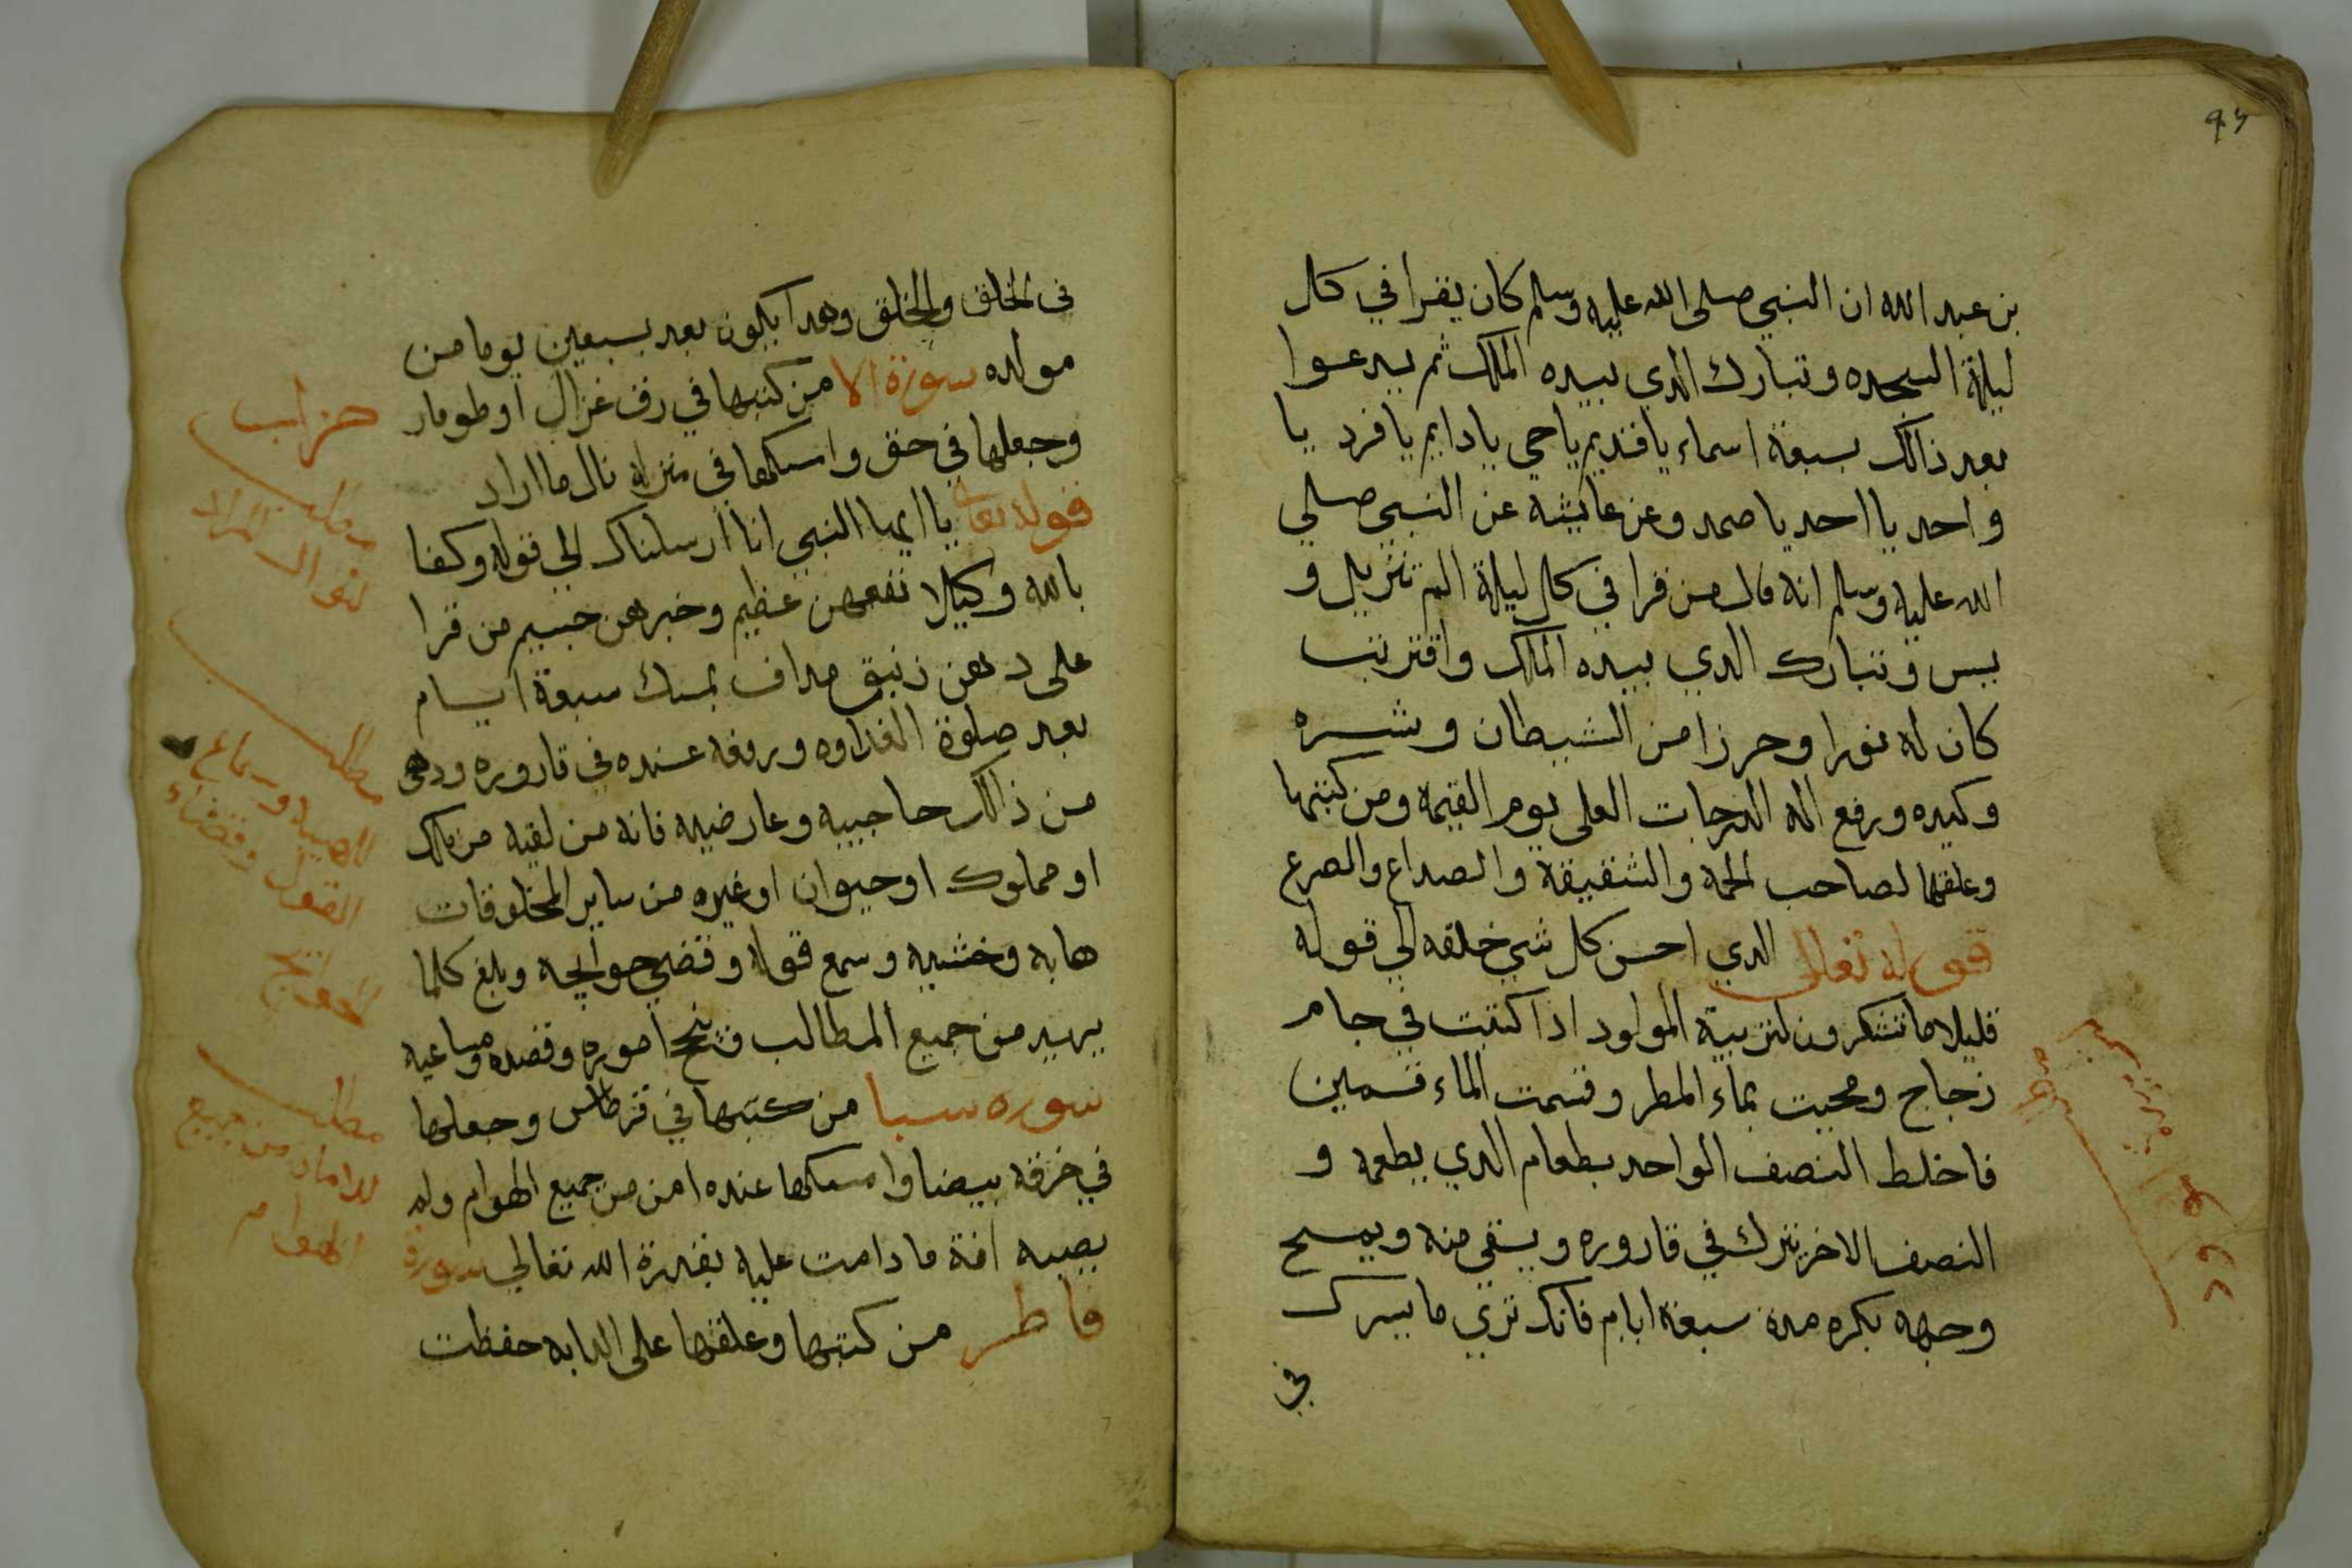 بن عبد الله ان النبي صلى الله عليه وسلم كان يقرا في كل
ليلة السجده وتبارك الدى بيده الملك ثم يدعوا
بعد ذالك بسبعة اسماء يا قديم يا حي يا دايم يا فرد يا
واحد يا احد يا صمد وعن عايشه عن النبي صلي
الله عليه وسلم انه قال من قرا في كل ليلة الم تنزيل و
يس وتبارك الدي بيده الملك واقتربت
كان له نورا وحرزا من الشيطان وشره
وكيده ورفع اله الدرجات العلى يوم القيمة ومن كتبها
وعلقها لصاحب الحمة والشقيقة والصداع والصرع
قوله تعالى الدي احسن كل شي خلقه الي قوله
قليلا ما تشكرون لتربية المولود ادا كتبت في جام
زجاج ومحيت بماء المطر وقسمت الماء قسمين
فاخلط النصف الواحد بطعام الدي يطعمه و
النصف الاخر يترك في قاروره ويسقي منه ويمسح
وجهه بكره مدة سبعة ايام فانك تري ما يسرك
في
فى الخلق والخلق وهدا يكون بعد سبعين يوما من
مولده سورة الا من كتبها في رق غزال او طومار
حزاب
وجعلها في حق وامسكها في منزله نال ما اراد
مطلب
لنوال المراد
قوله تعالى يا ايها النبي انا ارسلناك الي قوله وكفا
بالله وكيلا نفعهن عظيم وخبرهن جسيم من قرا
على دهن زنبق مداف بمسك سبعة ايام
بعد صلوة الغداوه ورفعه عنده في قاروره ودهن
من ذالك حاجبيه وعارضيه فانه من لقيه من ملك
او مملوك او حيوان او غيره من ساير المخلوقات
هابه وخشيه وسمع قوله وقضي حوايجه وبلغ كلما
يريد من جميع المطالب فتنجح اموره وقصده ومساعيه
مطلب
للهيبه وسماع
القول وقضاء
الحوايج
سوره سبا من كتبها في قرطاس وجعلها
في خرقه بيضا وامسكها عنده امن من جميع الهوام ولم
يصيبه افة ما دامت عليه بقدرة الله تعالي سورة
فاطر من كتبها وعلقها على الدابه حفظت
مطلب
للامان من جميع
الهوام